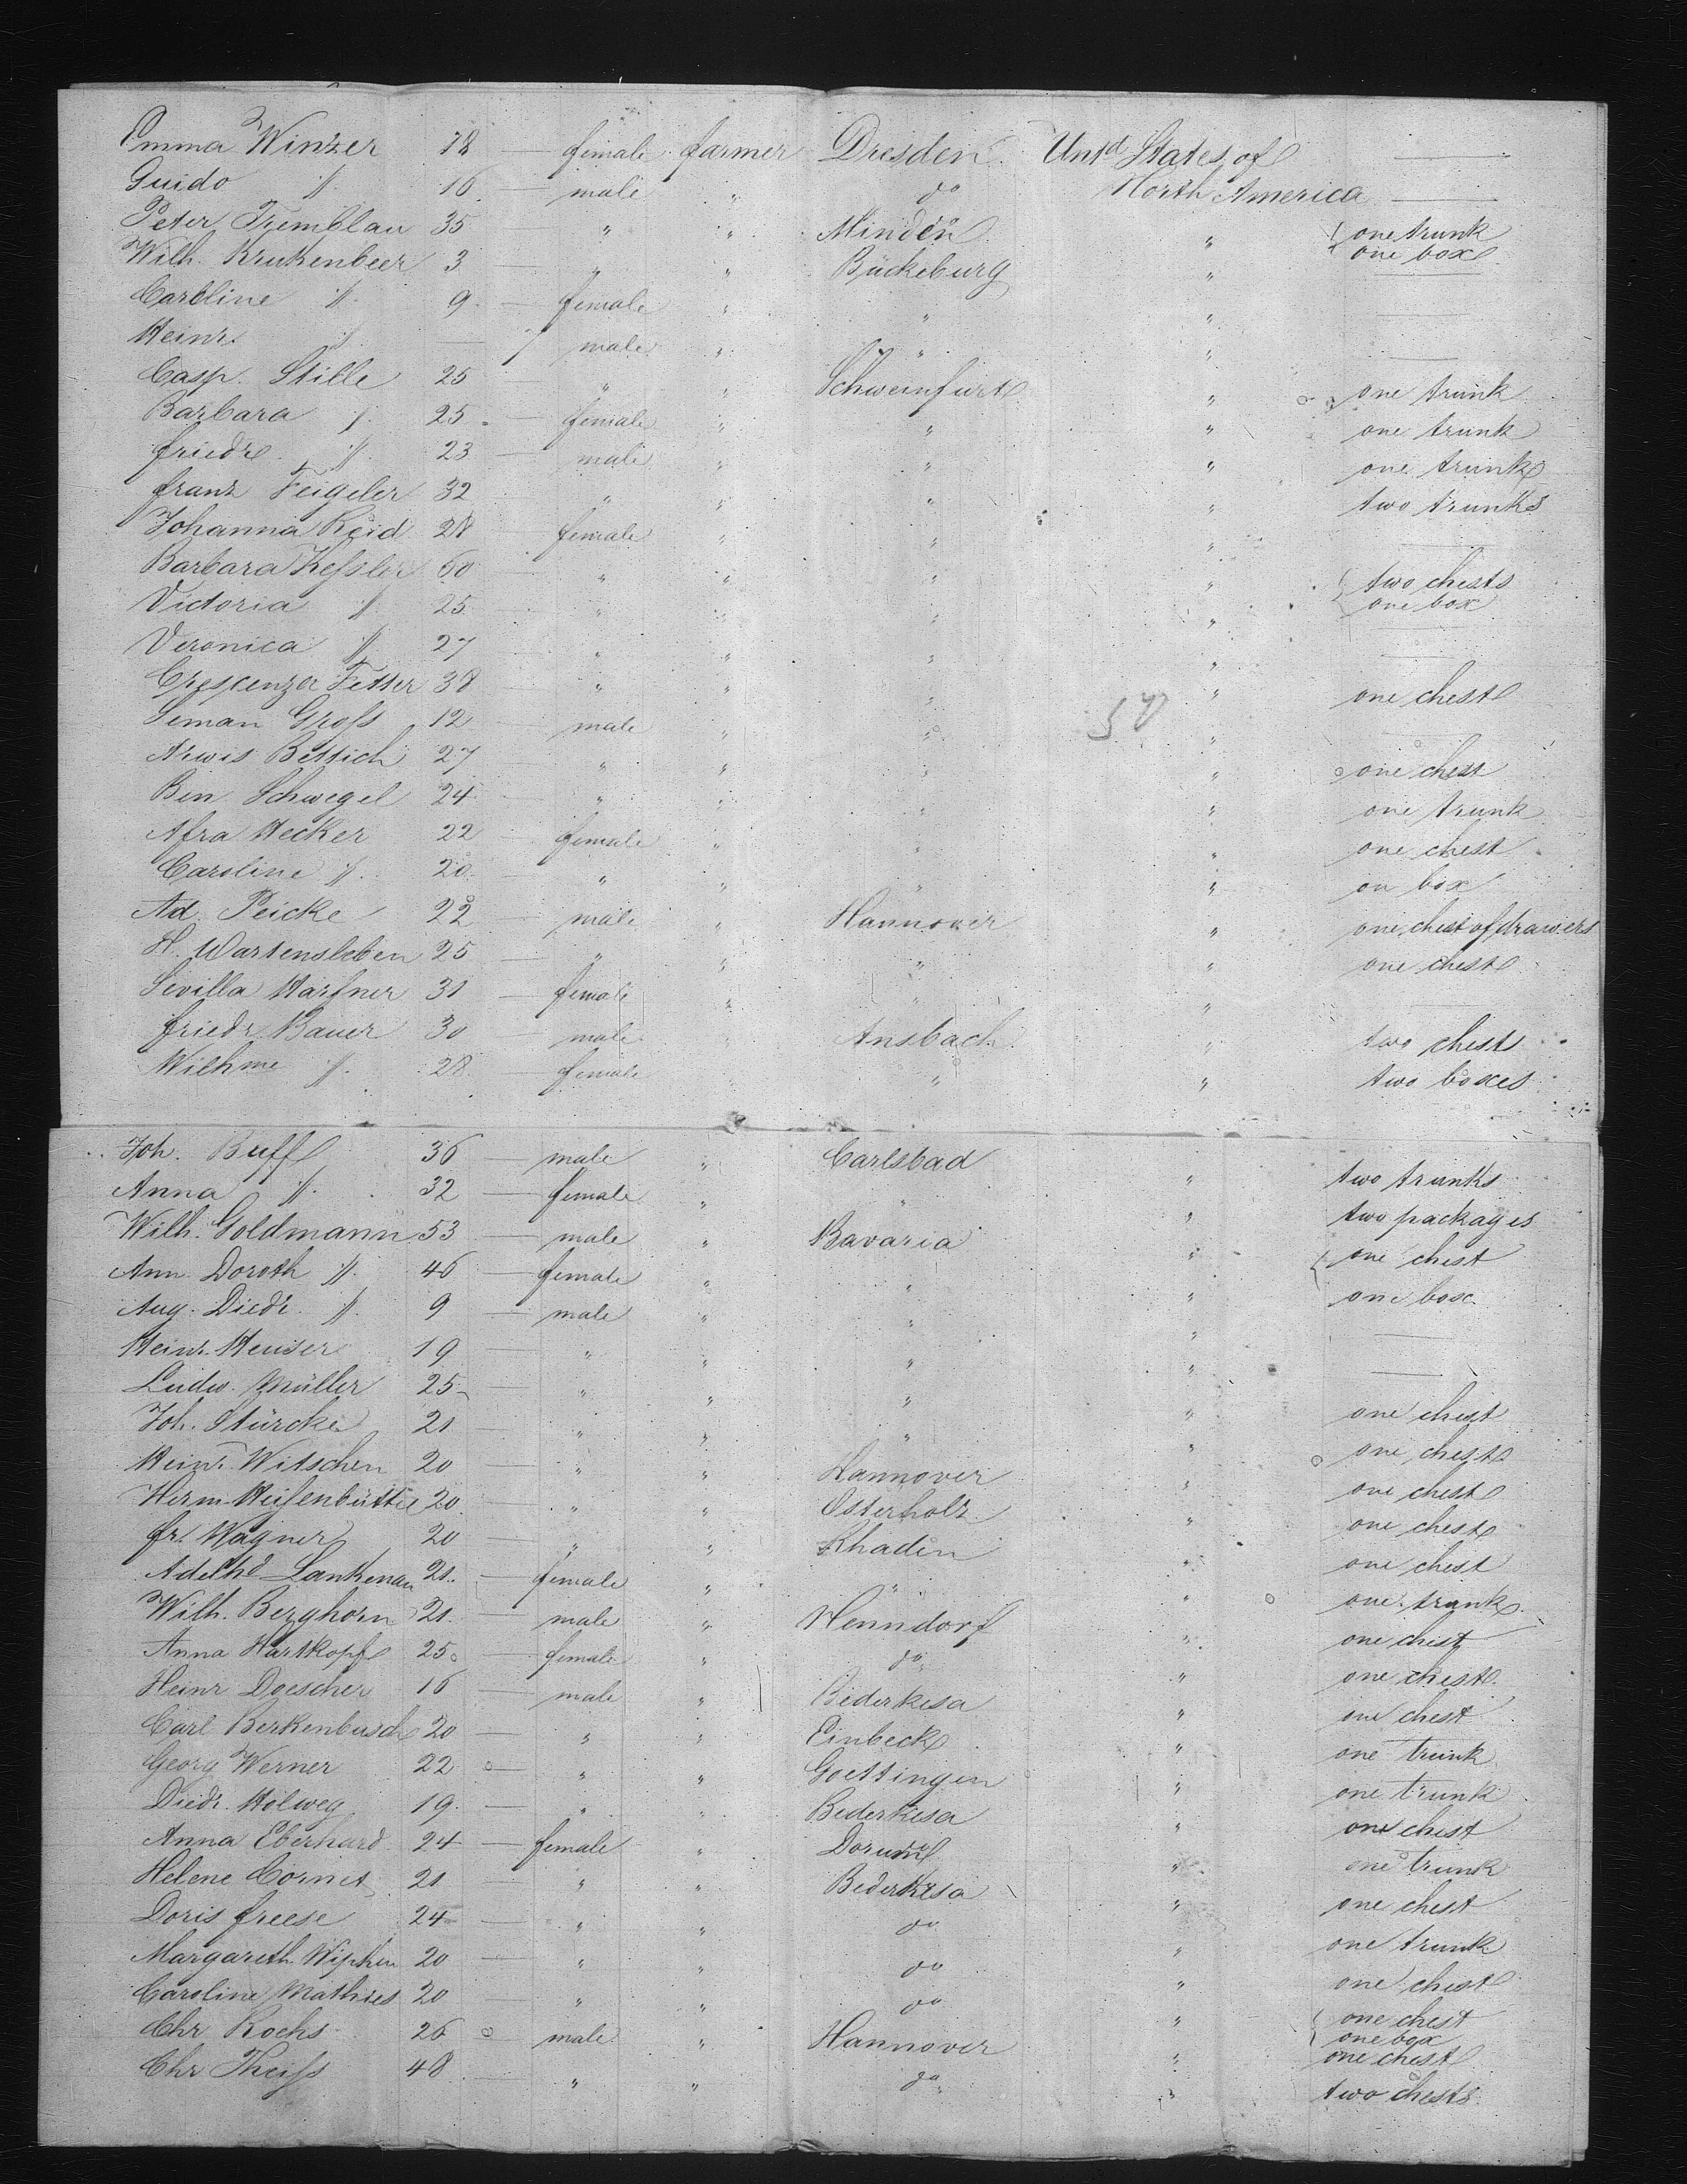 Emma Winzer 18 — female farmer Dresden Untd States of —
Guido " 16 — male " do North America —
Peter Tremblau 35 " " Minden " one trunk
one box
Wilh. Krukenbeer 3 — " " Bückeburg " —
Caroline " 9 — female " " " —
Heinr. " — male " " " —
Casp. Stille 25 — " " Schweinfurt " one trunk
Barbara " 25 — female " " " one trunk
Friedr. " 23 — male " " " one trunk
Franz Feigeler 32 " " " " two trunks
Johanna Reid 28 — female " " " —
Barbara Kessler 60 — " " " " two chests
one box
Victoria " 25 — " " " "
Veronica " 27 " " " " —
Crescenza Fetter 38 — " " " " one chest
Seman Gross 12 — male " " " —
Bettich 27 — " " " " one chest
Ben Schwegel 24 — " " " " one trunk
Afra Hecker 22 — female " " " one chest
Caroline " 20 — " " " " on box
Ad. Peicke 22 — male " Hannover " one chest of drawers
H. Wartensleben 25 — " " " " one chest
Sevilla Harfner 31 — female " " " —
Friedr. Bauer 30 — male " Ansbach " two chests
Wilhme " 28 — female " " two boxes
Joh. Buff 36 — male " Carlsbad " two trunks
Anna " 32 — female " " " two packages
Wilh. Goldmann 53 — male " Bavaria " one chest
Ann Doroth " 46 — female " " " one box
Aug. Diedr. " 9 — male " " " —
Heinr. Heuser 19 — " " " " —
Ludw. Müller 25 — " " " " one chest
Joh. Stürcke 21 — " " " " one chest
Heinr. Witschen 20 — " " Hannover " one chest
Herm. 20 — " " Osterholz " one chest
Fr. Wagner 20 — " " Rhaden " one chest
Adelhd Lankenau 21 — female " " " one trunk
Wilh. Berghorn 21 — male " Henndorf " one chest
Anna Hartkopf 25 — female " do " one chest
Heinr Doescher 16 — male " Bederkesa " one chest
Carl Berkenbusch 20 — " " Einbeck " one trunk
Georg Werner 22 — " " Goettingen " one trunk
Diedr. Holweg 19 — " " Bederkesa " one chest
Anna Eberhard 24 — female " Dorum " one trunk
Helene Cornet 21 — " " Bederkesa " one chest
Doris Freese 24 — " " do " one trunk
Margareth 20 — " " do " one chest
Caroline Mathies 20 — " " do " one chest
one box
Chr Rochs 26 — male " Hannover " one chest
Chr Theiss 48 — " " do " two chests